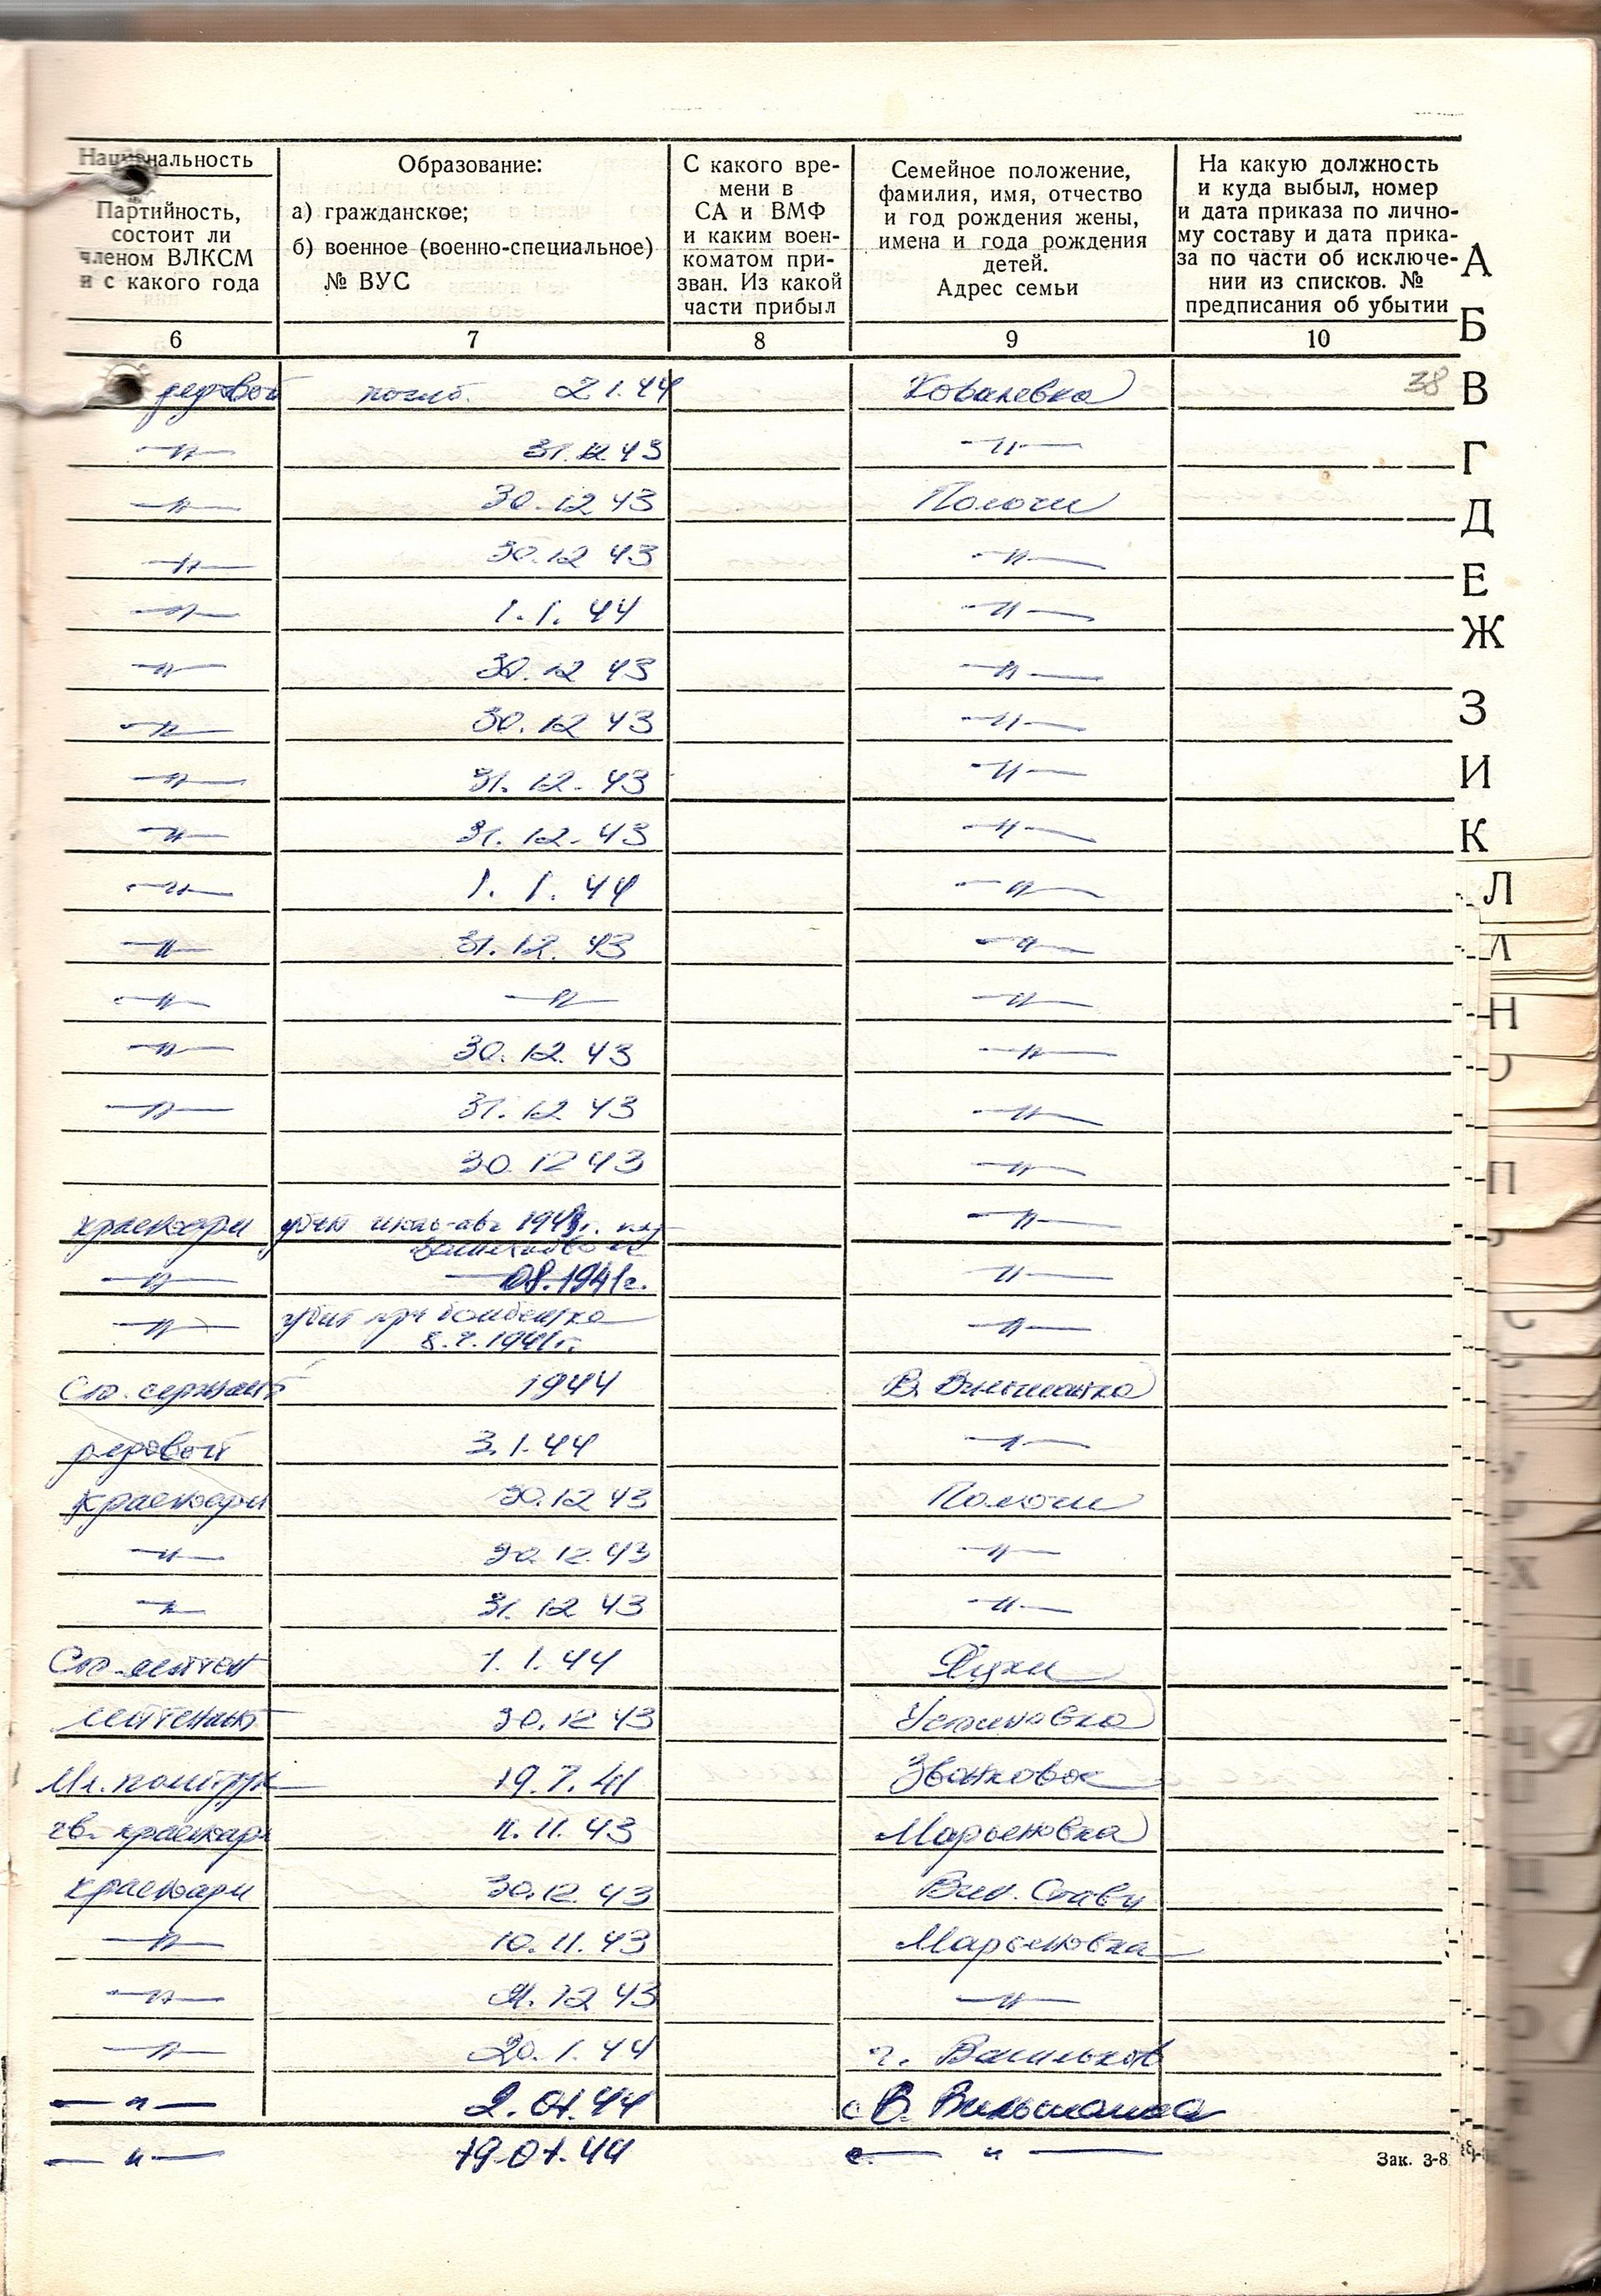 Национальность
Партийность,
состоит ли
членом ВЛКСМ
и с какого года
Образование:
а) гражданское;
б) военное (военно-специальное)
№ ВУС
С какого вре-
мени в
СА и ВМФ
и каким воен-
коматом при-
зван. Из какой
части прибыл
Семейное положение,
фамилия, имя, отчество
и год рождения жены,
имена и года рождения
детей.
Адрес семьи
На какую должность
и куда выбыл, номер
и дата приказа по лично-
му составу и дата прика-
за по части об исключе-
нии из списков. №
предписания об убытии
6 7 8 9 10
рядовой погиб. 2 1.44 Ковалевка 38
—"— 31.12.43 —"—
—"— 30.12 43 Пологи
—"— 30.12 43 —"—
—"— 1.1.44 —"—
—"— 30.12 43 —"—
—"— 30.12 43 —"—
—"— 31.12.43 —"—
—"— 31.12.43 —"—
—"— 1.1.44 —"—
—"— 31.12.43 —"—
—"— —"— —"—
—"— 30.12.43 —"—
—"— 31.12 43 —"—
30.12 43 —"—
красноарм убит июль-авг —"—
—"— 08.1941г. —"—
—"— убит при бомбежке —"—
8.7.1941г.
Ст. сержант 1944 В. Вильшанка
рядовой 3.1.44 —"—
Красноарм 30.12 43 Пологи
—"— 30.12.43 —"—
—"— 31.12 43 —"—
Ст. лейтен 1.1.44 Яцки
лейтенант 30.12 43 Устиновка
Мл. политрук 19.7.41 Звонковое
гв. красноарм 11.11.43 Марьяновка
красноарм 30.12.43 Вин. Ставы
—"— 10.11.43 Марьяновка
—"— 12 43 —"—
—"— 20.1.44 г. Васильков
—"— 2.01.44 с В. Вильшанка
—"— 19.01.44 с. —"—
Зак. 3-8
А
Б
В
Г
Д
Е
Ж
З
И
К
Л
Н
П
Х